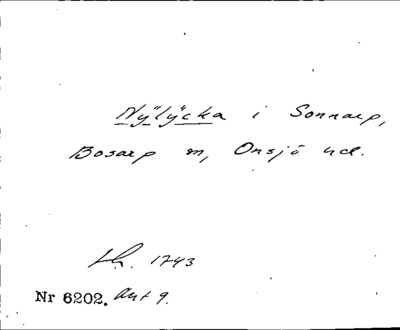 Nÿlÿcka i Sonnarp,
Bosarp sn, Onsjö hd.
1743
Nr 6202. Ant 9.